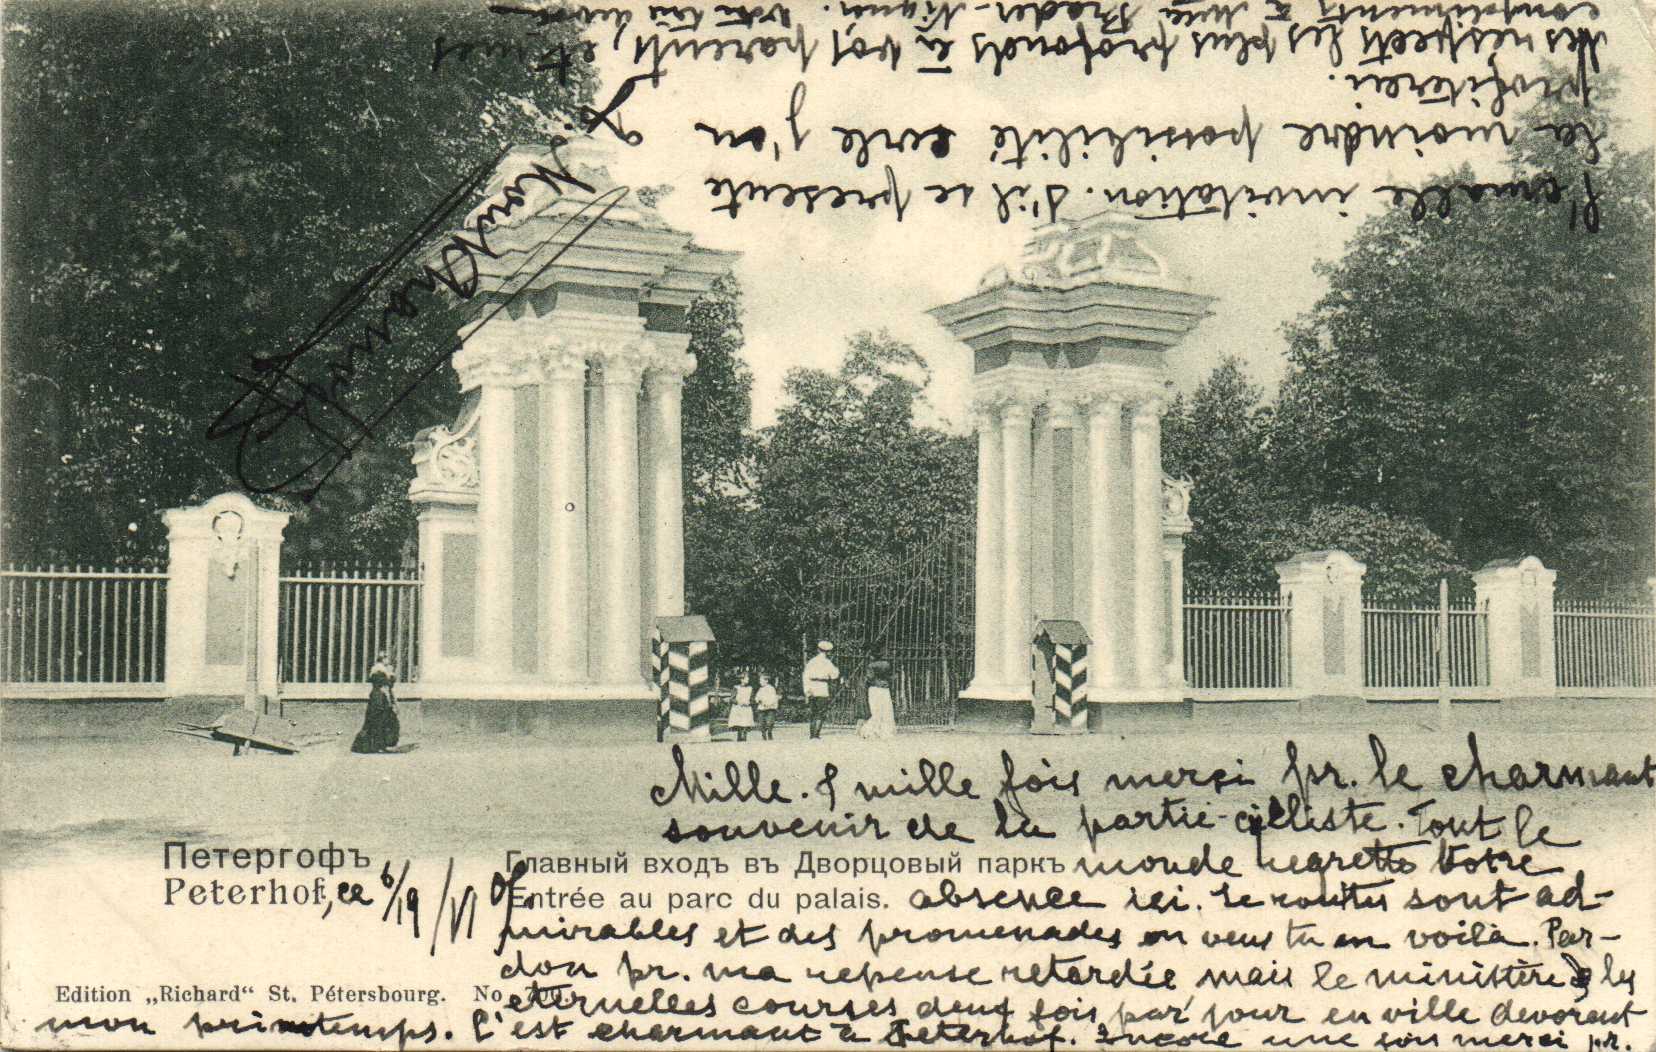 Mille & mille fois merci pr. le charmant
souvenir de la partie cicliste. Tout le
monde regrette Votre
absence ici. Le routes sont ad-
mirables et des promenades en veux tu en voilà. Par-
don pr. ma reponse retardée mais le ministère & les
eternelles courses deux fois par jour en ville devorent
mon printemps. C'est charmant à Peterhof. Encore une fois merci pr.
l'aimable invitation. S'il se presente
la moindre possibilité j'en
profiterai.
Mes respects les plus profonds à vos parents, et mes
compliments à Mlle
Петергофъ
Peterhof, ce 6/19/VI
Главный входъ въ Дворцовый паркъ
Entrée au parc du palais.
Edition „Richard“ St. Pétersbourg. No.